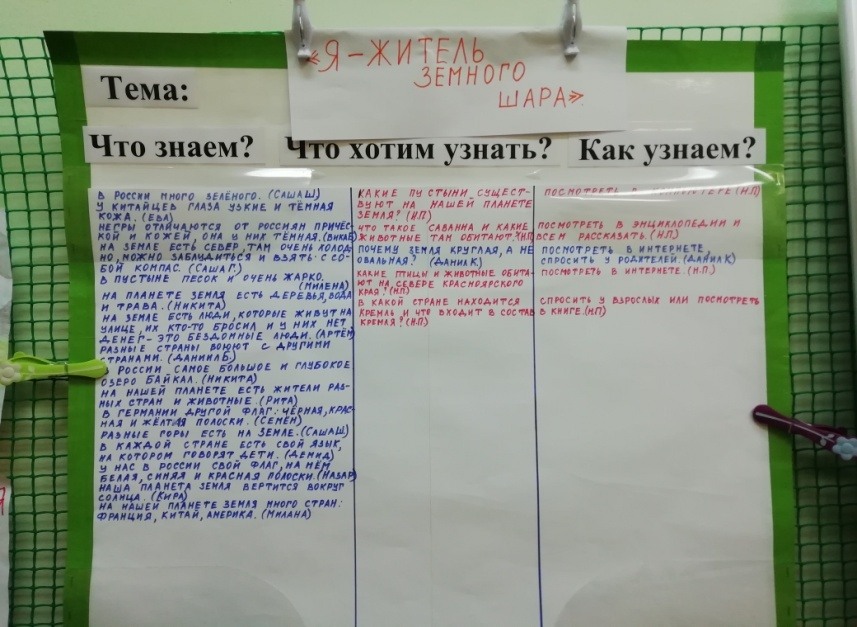 «Я-ЖИТЕЛЬ
ЗЕМНОГО
ШАРА»
Тема:
Что знаем?
В РОССИИ МНОГО ЗЕЛЁНОГО. (САШАШ)
У КИТАЙЦЕВ ГЛАЗА УЗКИЕ И ТЁМНАЯ
КОЖА. (ЕВА)
НЕГРЫ ОТЛИЧАЮТСЯ ОТ РОССИЯН ПРИЧЁС-
КОЙ И КОЖЕЙ, ОНА У НИХ ТЁМНАЯ.
НА ЗЕМЛЕ ЕСТЬ СЕВЕР, ТАМ ОЧЕНЬ ХОЛОД-
НО, МОЖНО ЗАБЛУДИТЬСЯ И ВЗЯТЬ С СО-
БОЙ КОМПАС. (САША Г.)
В ПУСТЫНЕ ПЕСОК И ОЧЕНЬ ЖАРКО.
(МИЛЕНА)
НА ПЛАНЕТЕ ЗЕМЛЯ ЕСТЬ ДЕРЕВЬЯ, ВОДА
И ТРАВА. (НИКИТА)
НА ЗЕМЛЕ ЕСТЬ ЛЮДИ, КОТОРЫЕ ЖИВУТ НА
УЛИЦЕ, ИХ КТО-ТО БРОСИЛ И У НИХ НЕТ
ДЕНЕГ- ЭТО БЕЗДОМНЫЕ ЛЮДИ. (АРТЁМ)
РАЗНЫЕ СТРАНЫ ВОЮЮТ С ДРУГИМИ
СТРАНАМИ. (ДАНИИЛ Б.)
РОССИИ САМОЕ БОЛЬШОЕ И ГЛУБОКОЕ
ОЗЕРО БАЙКАЛ. (НИКИТА)
НА НАШЕЙ ПЛАНЕТЕ ЕСТЬ ЖИТЕЛИ РАЗ-
НЫХ СТРАН И ЖИВОТНЫЕ. (РИТА)
В ГЕРМАНИИ ДРУГОЙ ФЛАГ: ЧЁРНАЯ, КРАС-
НАЯ И ЖЁЛТАЯ ПОЛОСКИ. (СЕМЁН)
РАЗНЫЕ ГОРЫ ЕСТЬ НА ЗЕМЛЕ. (САШАШ)
В КАЖДОЙ СТРАНЕ ЕСТЬ СВОЙ ЯЗЫК,
НА КОТОРОМ ГОВОРЯТ ДЕТИ. (ДЕМИД)
У НАС В РОССИИ СВОЙ ФЛАГ, НА НЁМ
БЕЛАЯ, СИНЯЯ И КРАСНАЯ ПОЛОСКИ. (НАЗАР)
НАША ПЛАНЕТА ЗЕМЛЯ ВЕРТИТСЯ ВОКРУГ
СОЛНЦА. (КИРА)
НА НАШЕЙ ПЛАНЕТЕ ЗЕМЛЯ МНОГО СТРАН:
ФРАНЦИЯ, КИТАЙ, АМЕРИКА. (МИЛАНА)
Что хотим узнать?
КАКИЕ ПУСТЫНИ СУЩЕСТ-
ВУЮТ НА НАШЕЙ ПЛАНЕТЕ
ЗЕМЛЯ? (Н.П)
ЧТО ТАКОЕ САВАННА И КАКИЕ
ЖИВОТНЫЕ ТАМ ОБИТАЮТ? (Н.П)
ПОЧЕМУ ЗЕМЛЯ КРУГЛАЯ, А НЕ
ОВАЛЬНАЯ? (ДАНИЛ К)
КАКИЕ ПТИЦЫ И ЖИВОТНЫЕ ОБИТА-
ЮТ НА СЕВЕРЕ КРАСНОЯРСКОГО
КРАЯ? (Н.П.)
В КАКОЙ СТРАНЕ НАХОДИТСЯ
КРЕМЛЬ И ЧТО ВХОДИТ В СОСТАВ
КРЕМЛЯ? (Н.П.)
Как узнаем?
ПОСМОТРЕТЬ В (Н.П)
ПОСМОТРЕТЬ В ЭНЦИКЛОПЕДИИ И
ВСЕМ РАССКАЗАТЬ. (Н.П.)
ПОСМОТРЕТЬ В ИНТЕРНЕТЕ,
СПРОСИТЬ У РОДИТЕЛЕЙ. (ДАНИЛ К)
ПОСМОТРЕТЬ В ИНТЕРНЕТЕ. (Н.П.)
СПРОСИТЬ У ВЗРОСЛЫХ ИЛИ ПОСМОТРЕТЬ
В КНИГЕ. (Н.П)